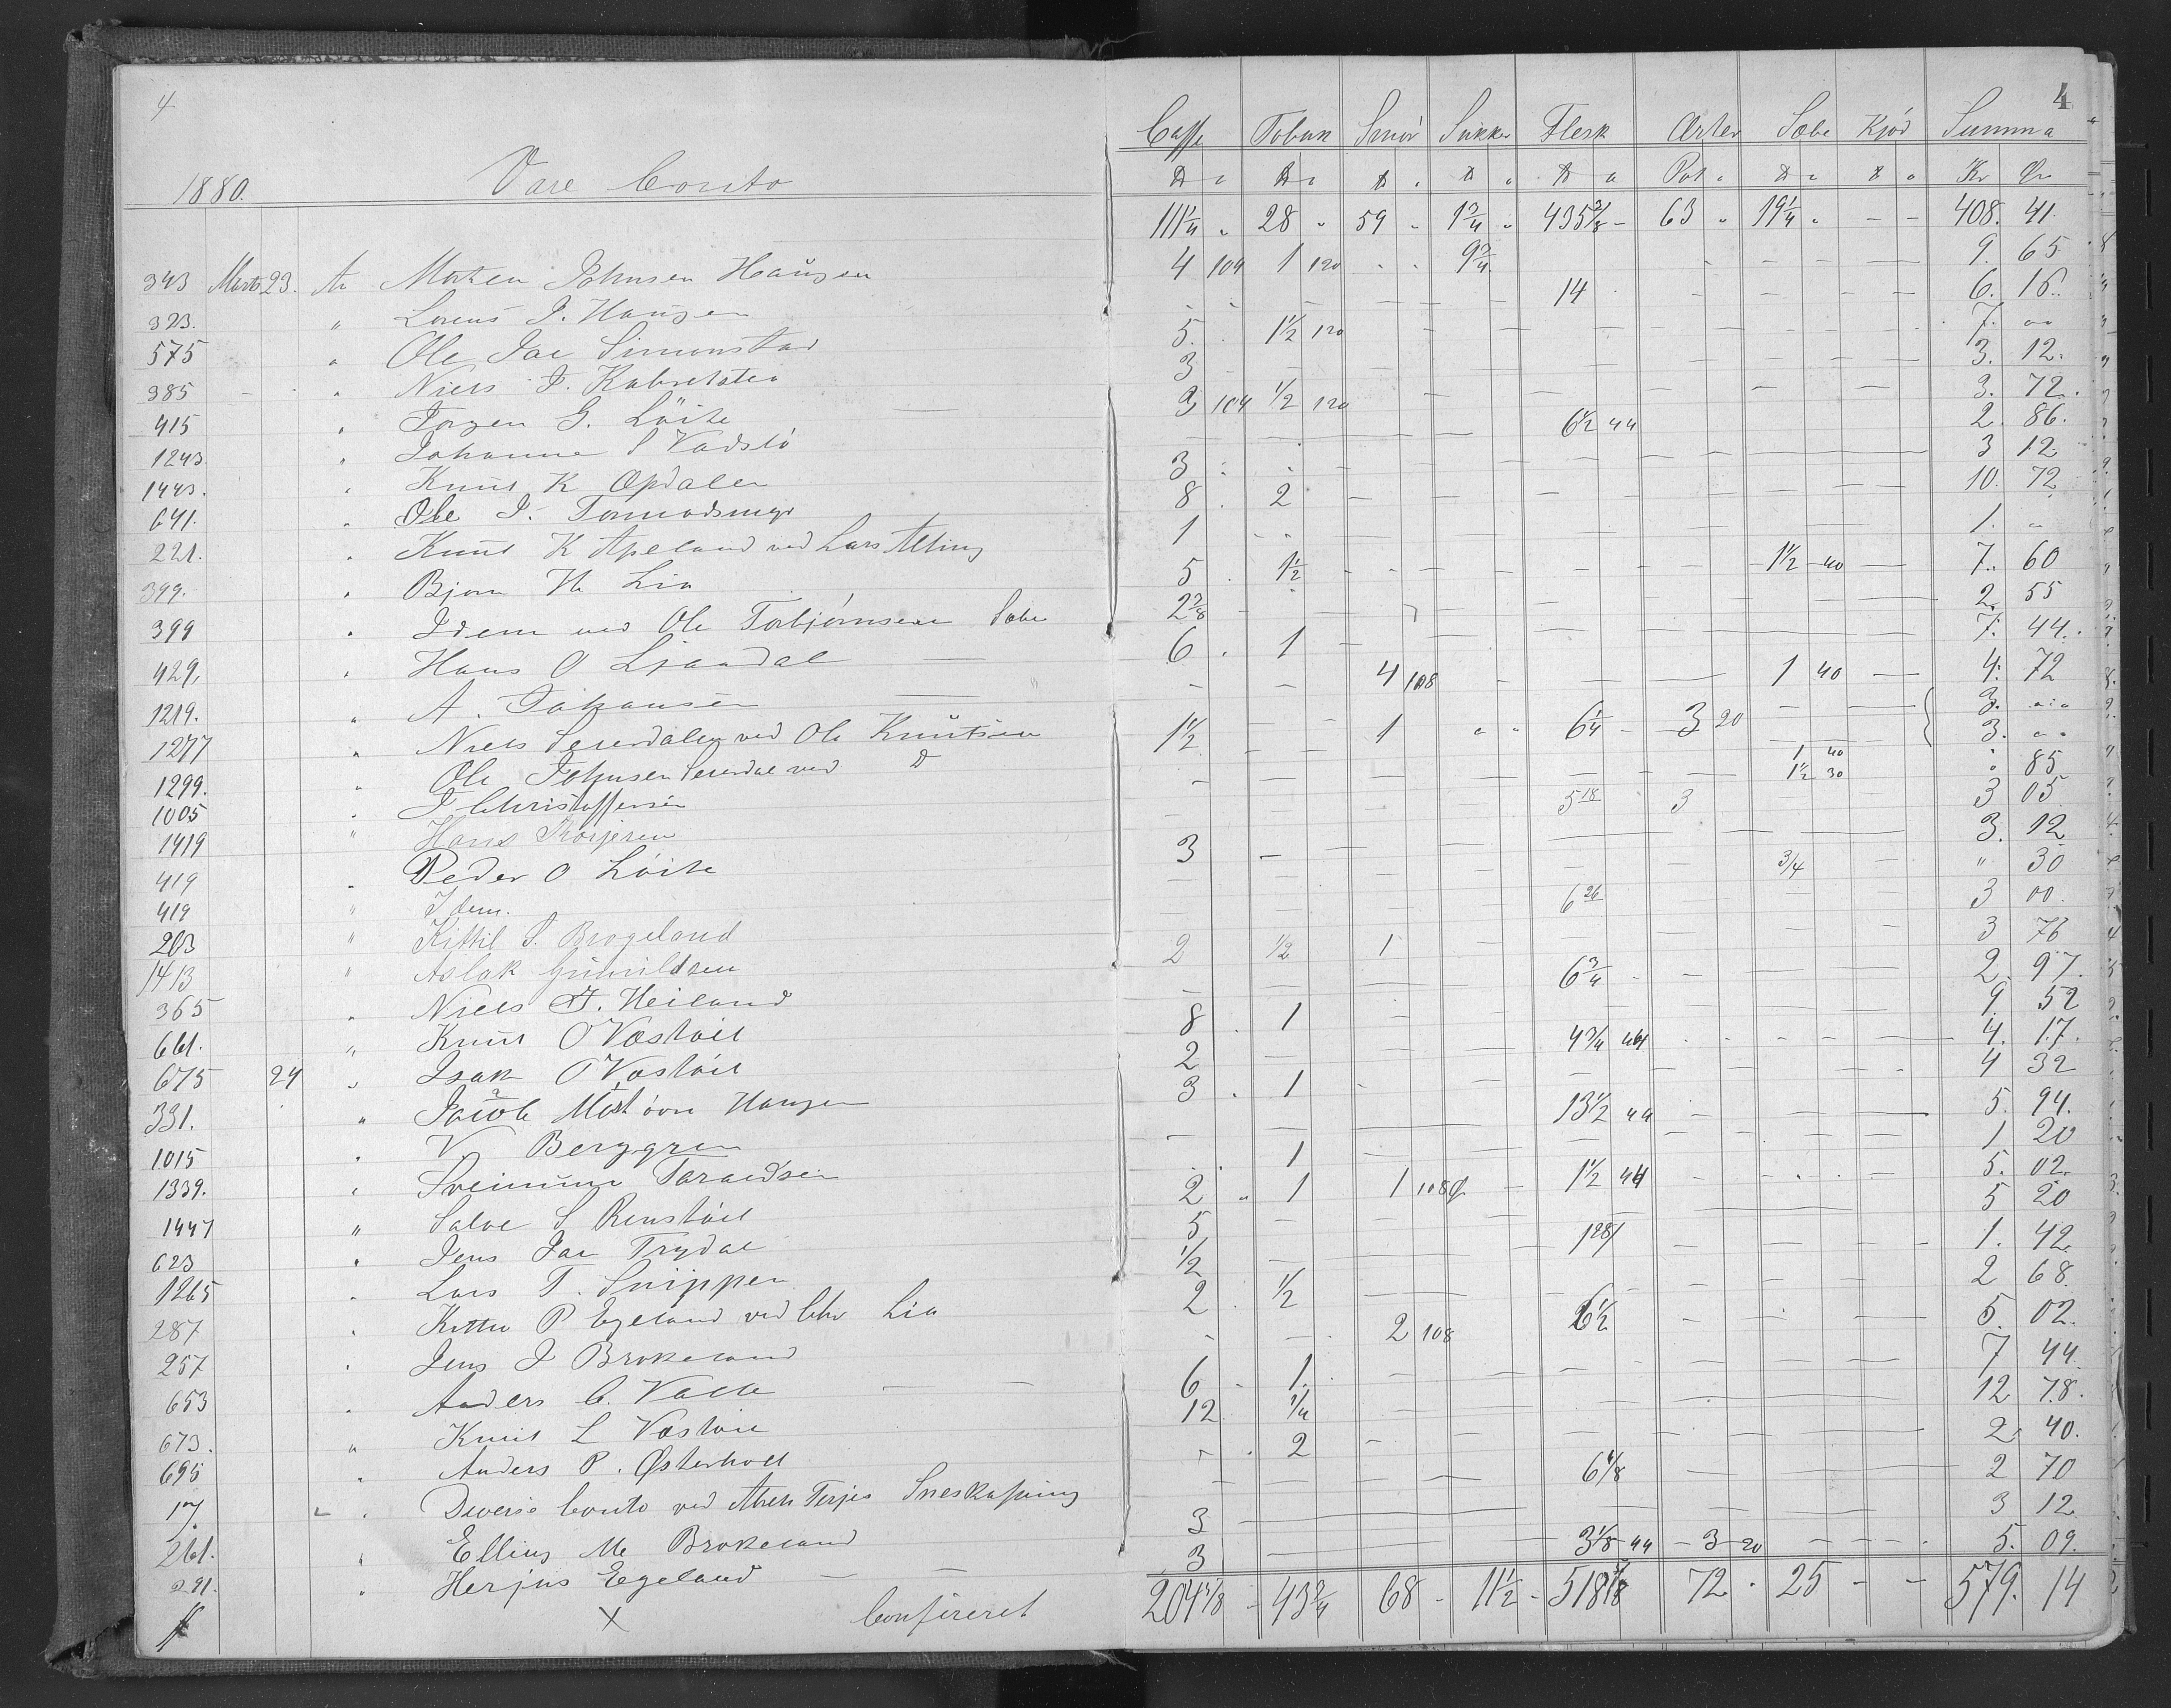 4
4
Caffe Tobak Smör Sukker Flesk Ærter Sæbe Kjöd Summa
1880. Vare Conto ℔ ℔ ℔ ℔ ℔ Pot ℔ ℔ Kr Ør
111 1/4 " 28 " 59 " 1 3/4 " 435 3/8 - 63 " 19 1/4 " - - 408. 41.
343 Marts 23. An Morten Johnsen Haugen 4 104 1 120 " " 9 3/4 - - - - 9. 65
323. " Lorens J. Haugen - - - - 14 - - - - 6. 16.
575 " Ole Jac Simonstad 5. 1 1/2 120 - - - - - 7. "
385 " Niels J. 3 - - - - - 3. 12.
415 " Jörgen G. Löite 3 104 1/2 120 - - - - - 3. 72.
1243 " Johanne S Vadslö - - - - 6 1/2 44 - - - 2. 86.
1443. " Knut K Opdalen 3 " - - - - - 3 12.
641. " Ole J. 8. 2 - - - - - 10. 72
221. " Knut K Apeland ved Lars 1 " " - - - - 1. "
399. " Bjorn H. Lia 5. 1 1/2 - - - - 1 1/2 40 - 7. 60
399 " Idem ved Ole Torbjørnsen 2 7/8 - - - - - 2. 55
429. " Hans O Ljaadal 6. 1 - - - - - 7. 44.
1219. " A. Johansen - - 4 108 - - - 1 40 - 4. 72
1277 " Niels ved Ole Knutsen 1 1/2 - - 1 " " 6 1/4 - 3 20 - - { 3. "
1299. " Ole Johnsen ved D - - - - - - 1 40 3. "
1005 " J Christoffersen - - - - 1 1/2 30 " 85
1419 " Hans - 5 18 3 3 05
419 " Peder O Löite 3 - - - - - 3. 12
419 " Idem. - - - - - - 3/4 - " 30
203 " Kittil S. Brogeland - - - - 6 26 - - - 3 00.
1413 " Aslak 2 1/2 1 - - - - 3 76
365 " Niels J. Heiland - - - - 6 3/4 - - - 2. 97.
661. " Knut O Vostöil 8. 1 - - - - - 9. 52
675 24 " Isak O Vostöil 2 - - - 4 3/4 44 - - - 4. 17.
331. " Jacob Haugen 3. 1 - - - - - 4 32
1015 " V. Berggren - - - - 13 1/2 44 - - - 5. 94.
1339. " Sveinung Taraldsen - 1 - - - - - 1 20
1447 " Salve S Renstöil 2. " 1 1 108 - 1 1/2 44 - - - 5. 02.
623 " Jens Jac Trydal 5 - - - - - 5 20
1265 " Lars T. Snippen 1/2 - - - 1 28 - - - 1. 42.
287 " P Egeland ved Chr Lia 2. 1/2 - - - - - 2 68.
257 " Jens J Brokeland - - 2 108 6 1/2 - - - 5. 02.
653 " Anders C. Valle - - 6 - 1. - - - - - 7 44
673. " Knut L Vostöil 12. 1/4 - - - - - 12 78.
695 " Anders P. Østerholt - . 2 - - - - - 2. 40.
17. " Diverse Conto ved Terjes - - - - 6 1/8 - - - 2 70
261. " Ellius M Brokeland 3 - - - - - 3 12.
291. " Herjus Egeland - - 3 - - - 3 1/8 44 - 3 20 - - - 5. 09.
X Confireret 204 1/8 - 43 3/4 68 - 11 1/2 - 518 1/8 72 . 25 - - 579. 14